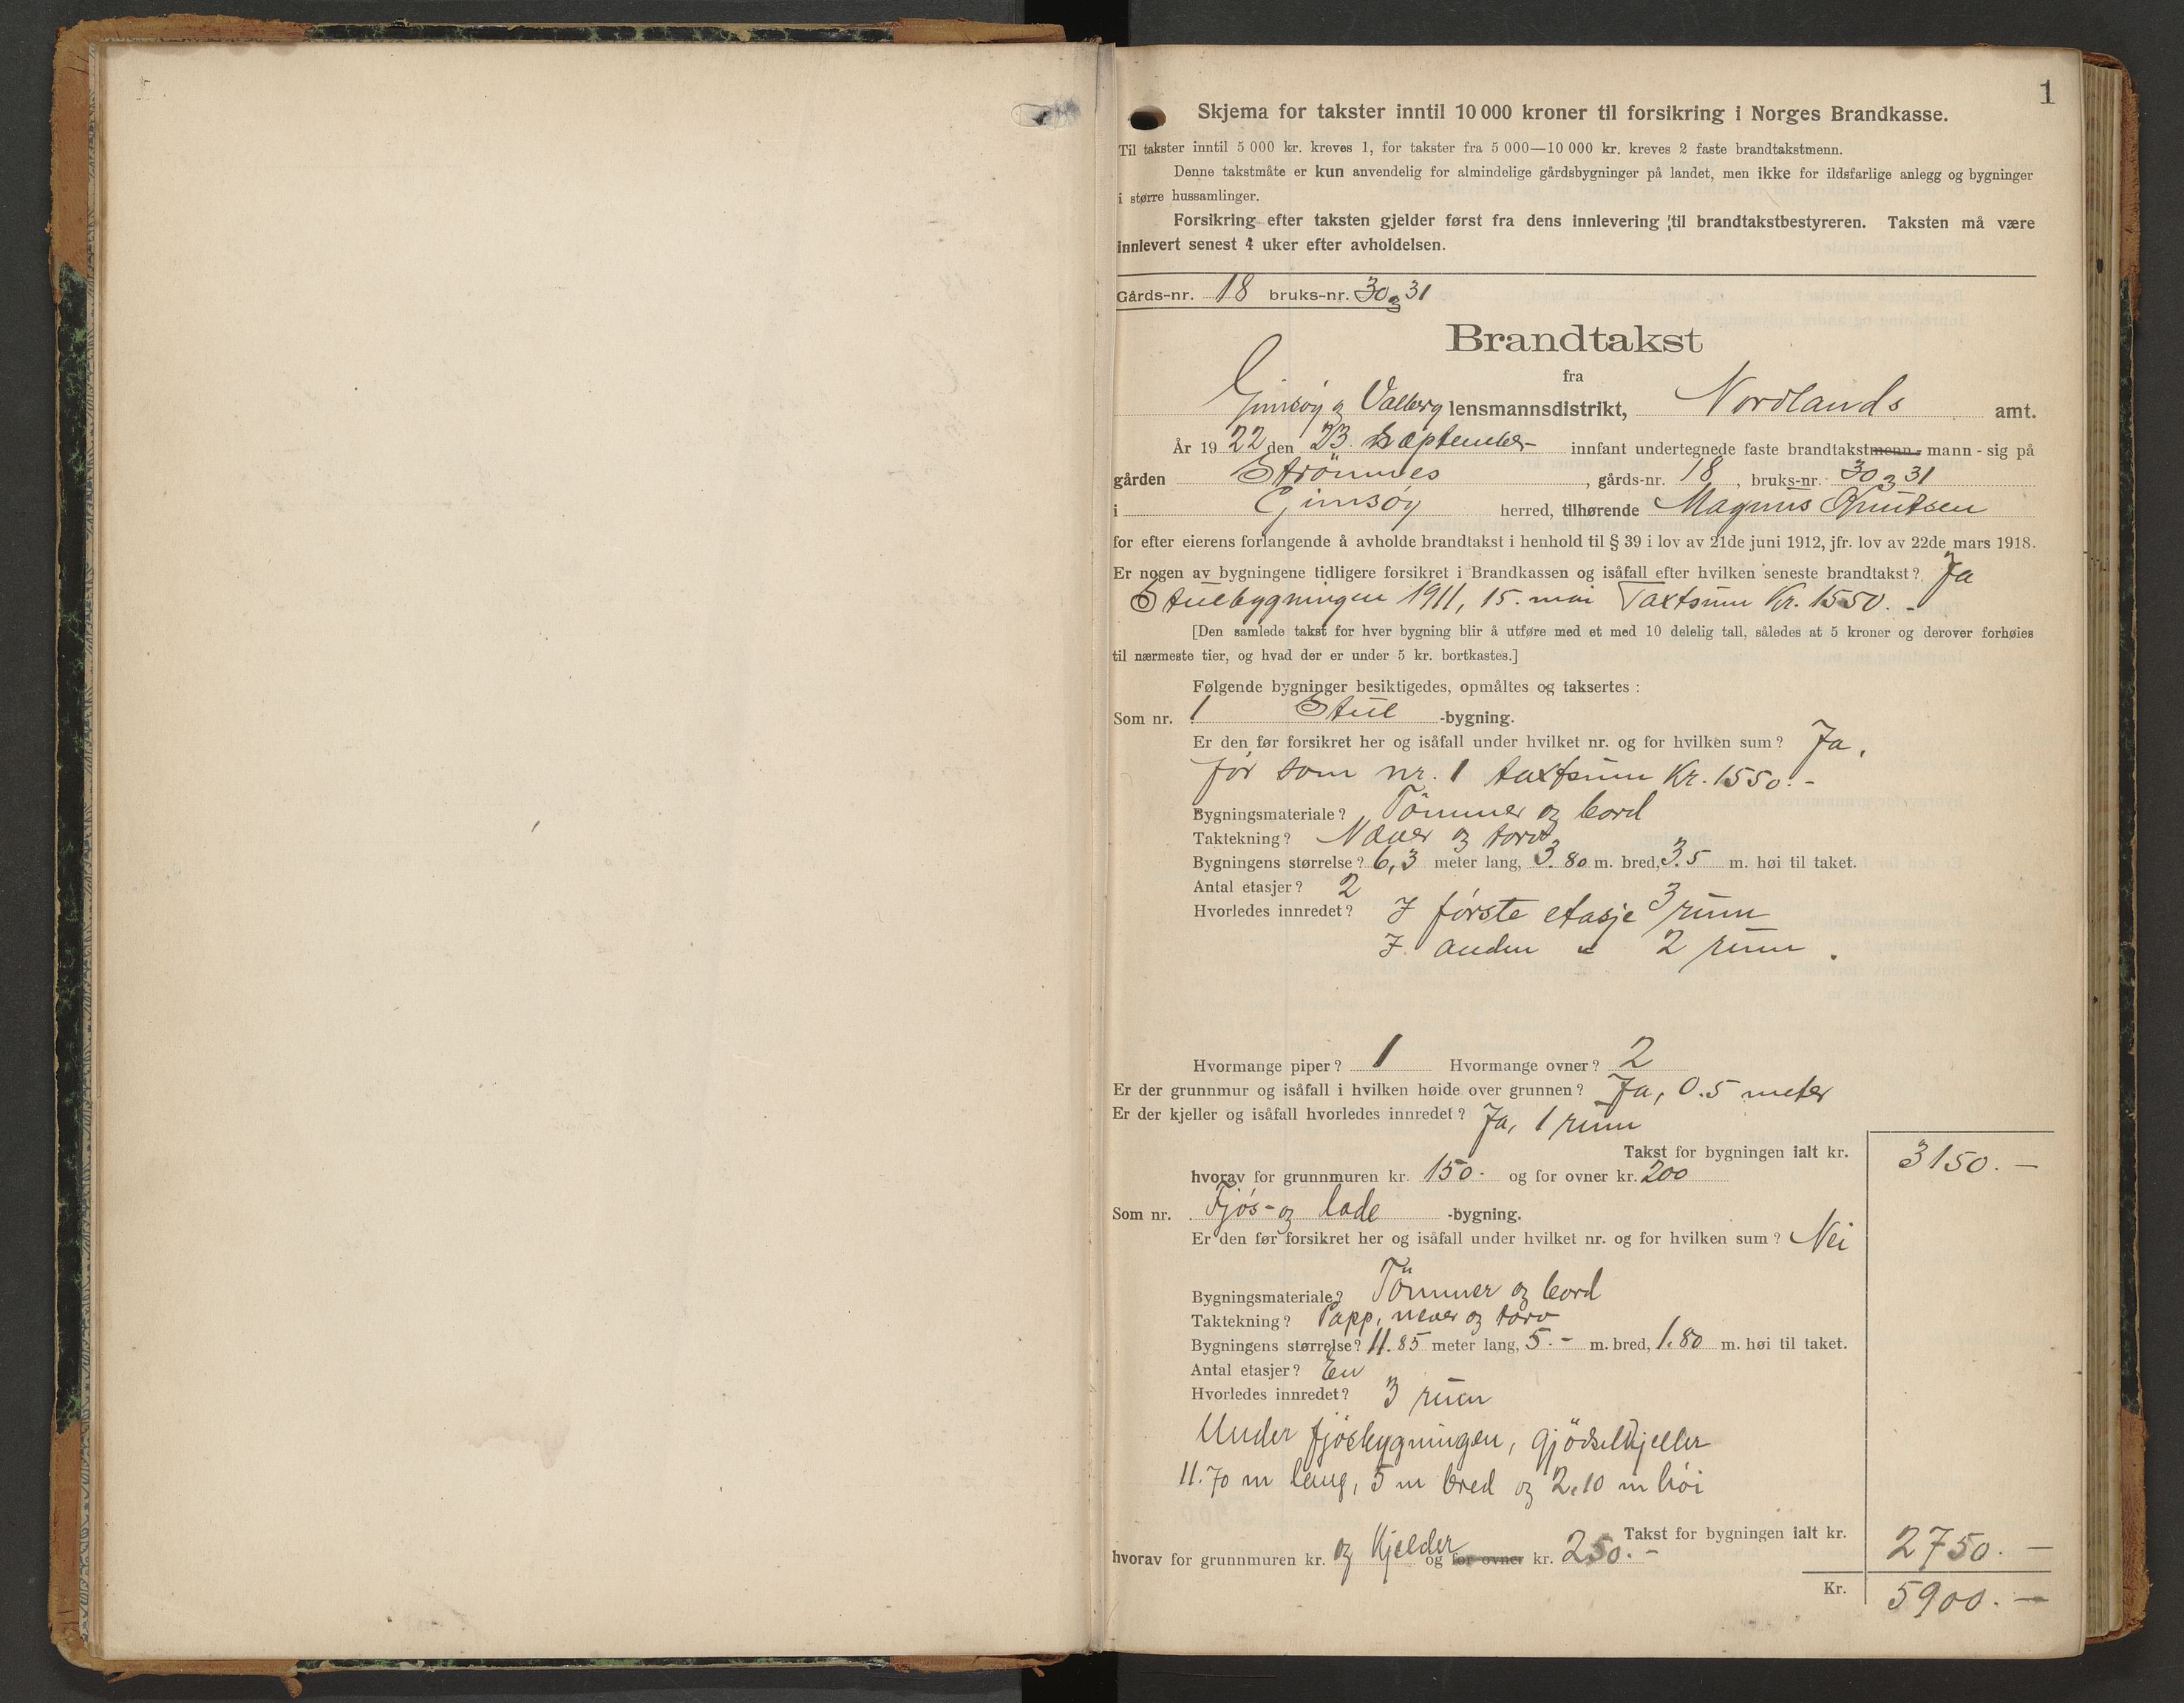 1
Skjema for takster inntil 10 000 kroner til forsikring i Norges Brandkasse.
Til takster inntil 5 000 kr. kreves 1, for takster fra 5 000—10 000 kr. kreves 2 faste brandtakstmenn.
Denne takstmåte er kun anvendelig for almindelige gårdsbygninger på landet, men ikke for ildsfarlige anlegg og bygninger
i større hussamlinger.
Forsikring efter taksten gjelder først fra dens innlevering til brandtakstbestyreren. Taksten må være
innlevert senest 4 uker efter avholdelsen.
Gårds-nr. 18 bruks-nr. 30 og 31
Brandtakst
fra
Gimsøy og Valberg lensmannsdistrikt, Nordlands amt.
År 1922 den 23. september innfant undertegnede faste brandtakstmenn - mann - sig på
gården Strömnes, gårds-nr. 18, bruks-nr. 30 og 31
i Gimsøy herred, tilhørende Magnus Knutsen
for efter eierens forlangende å avholde brandtakst i henhold til § 39 i lov av 21de juni 1912, jfr. lov av 22de mars 1918.
Er nogen av bygningene tidligere forsikret i Brandkassen og isåfall efter hvilken seneste brandtakst? Ja
Stuebygningen 1911, 15. mai Taxtsum Kr. 1550.-
[Den samlede takst for hver bygning blir å utføre med et med 10 delelig tall, således at 5 kroner og derover forhøies
til nærmeste tier, og hvad der er under 5 kr. bortkastes.]
Følgende bygninger besiktigedes, opmåltes og taksertes :
Som nr. 1 Stue -bygning.
Er den før forsikret her og isåfall under hvilket nr. og for hvilken sum? Ja,
før som nr. 1 taxtsum Kr. 1550.-
Bygningsmateriale? Tömmer og bord
Taktekning? Næver og torv
Bygningens størrelse? 6,3 meter lang, 3.80 m. bred, 3.5 m. høi til taket.
Antal etasjer? 2
Hvorledes innredet? I første etasje 3 rum
I anden " 2 rum.
Hvormange piper? 1 Hvormange ovner? 2
Er der grunnmur og isåfall i hvilken høide over grunnen? Ja, 0.5 meter
Er der kjeller og isåfall hvorledes innredet? Ja, 1 rum
Takst for bygningen ialt kr. 3150.-
hvorav for grunnmuren kr. 150.- og for ovner kr. 200
Som nr. Fjøs- og lade -bygning.
Er den før forsikret her og isåfall under hvilket nr. og for hvilken sum? Nei
Bygningsmateriale? Tömmer og bord
Taktekning? Papp, never og torv
Bygningens størrelse? 11.85 meter lang, 5.- m. bred, 1.80 m. høi til taket.
Antal etasjer? En
Hvorledes innredet? 3 rum
Under fjøsbygningen, gjödselkjeller
11.70 m lang, 5 m bred og 2.10 m høi
Takst for bygningen ialt kr. 2750.-
hvorav for grunnmuren kr. og Kjelder og for ovner kr. 250.-
Kr. 5900.-